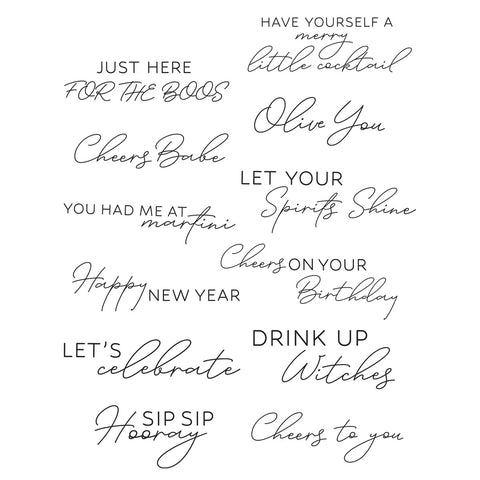 JUST HERE
FOR THE BOOS
Cheers Babe
YOU HAD ME AT
martini
Happy NEW YEAR
LET'S
celebrate
SIP SIP
Hooray
HAVE YOURSELF A
merry
little cocktail
Olive You
LET YOUR
Spirits Shine
Cheers ON YOUR
Birthday
DRINK UP
Witches
Cheers to you